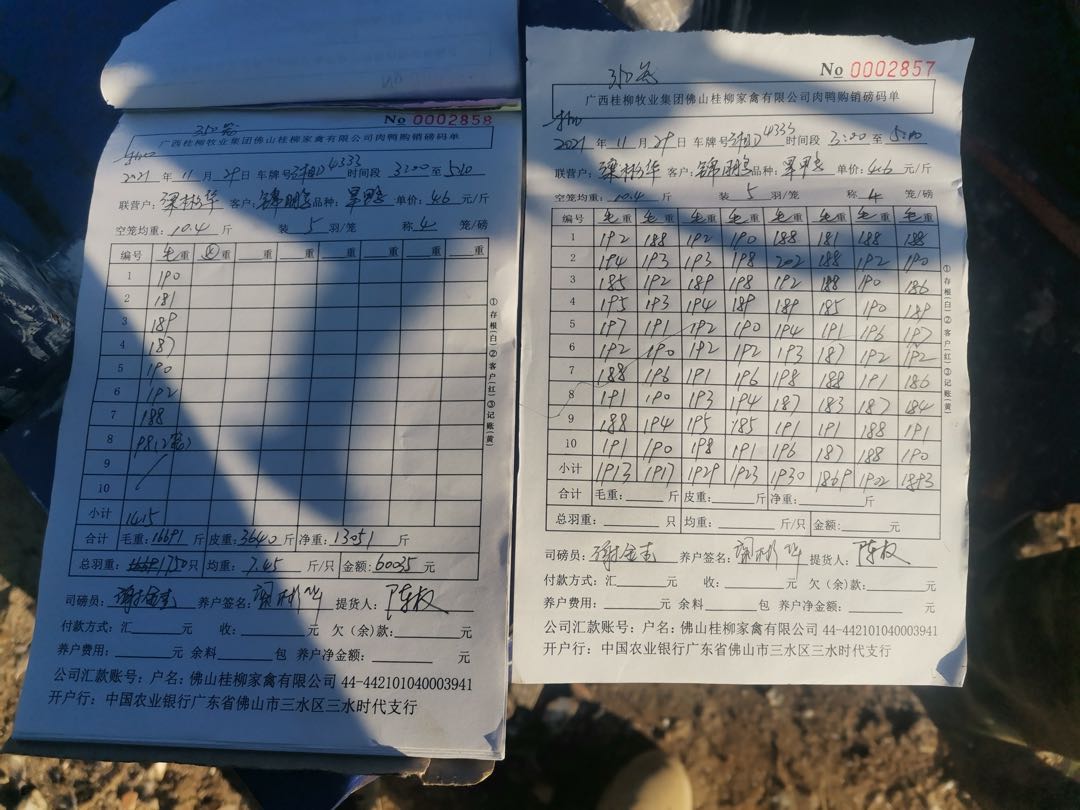 350笼
No 0002858
广西桂柳牧业集团佛山桂柳家禽有限公司肉鸭购销磅码单
2021年 11月 29日 车牌号 4333 时间段 3:00 至 5:20
联营户: 梁彬华 客户: 锦鹏 品种: 单价: 4.6 元/斤
空笼均重: 10.4 斤 装 5 羽/笼 称 4 笼/磅
编号 毛重 毛重 重 重 重 重 重 重
1 190
2 181
3 189
4 187
5 190
6 192
7 188
8 98(2笼)
9
10
小计 1415
合计 毛重: 16691 斤 皮重: 3640 斤 净重: 13051 斤
总羽重: 1750 只 均重: 7.45 斤/只 金额: 60035 元
司磅员: 养户签名: 梁彬华 提货人: 陈权
付款方式: 汇 元 收: 元 欠(余)款: 元
养户费用: 元 余料 包 养户净金额: 元
公司汇款账号: 户名: 佛山桂柳家禽有限公司 44-442101040003941
开户行: 中国农业银行广东省佛山市三水区三水时代支行
①存根(白)②客户(红)③记账(黄)
350笼
No 0002857
广西桂柳牧业集团佛山桂柳家禽有限公司肉鸭购销磅码单
2021年 11月 29日 车牌号 4333 时间段 3:00 至 5:20
联营户: 梁彬华 客户: 锦鹏 品种: 单价: 4.6 元/斤
空笼均重: 10.4 斤 装 5 羽/笼 称 4 笼/磅
编号 毛重 毛重 毛重 毛重 毛重 毛重 毛重 毛重
1 192 188 192 190 188 181 188 188
2 194 193 193 198 202 188 192 190
3 185 192 189 198 192 188 190 186
4 195 193 194 189 189 185 190 189
5 197 191 192 190 194 191 196 197
6 192 190 192 192 193 187 192 192
7 188 196 191 196 198 188 191 186
8 191 190 193 194 187 183 187 184
9 188 194 195 185 191 191 188 191
10 191 190 198 191 196 187 188 190
小计 1913 1917 1929 1923 1930 1869 1902 1893
合计 毛重: 斤 皮重: 斤 净重: 斤
总羽重: 只 均重: 斤/只 金额: 元
司磅员: 养户签名: 梁彬华 提货人: 陈权
付款方式: 汇 元 收: 元 欠(余)款: 元
养户费用: 元 余料 包 养户净金额: 元
公司汇款账号: 户名: 佛山桂柳家禽有限公司 44-442101040003941
开户行: 中国农业银行广东省佛山市三水区三水时代支行
①存根(白)②客户(红)③记账(黄)